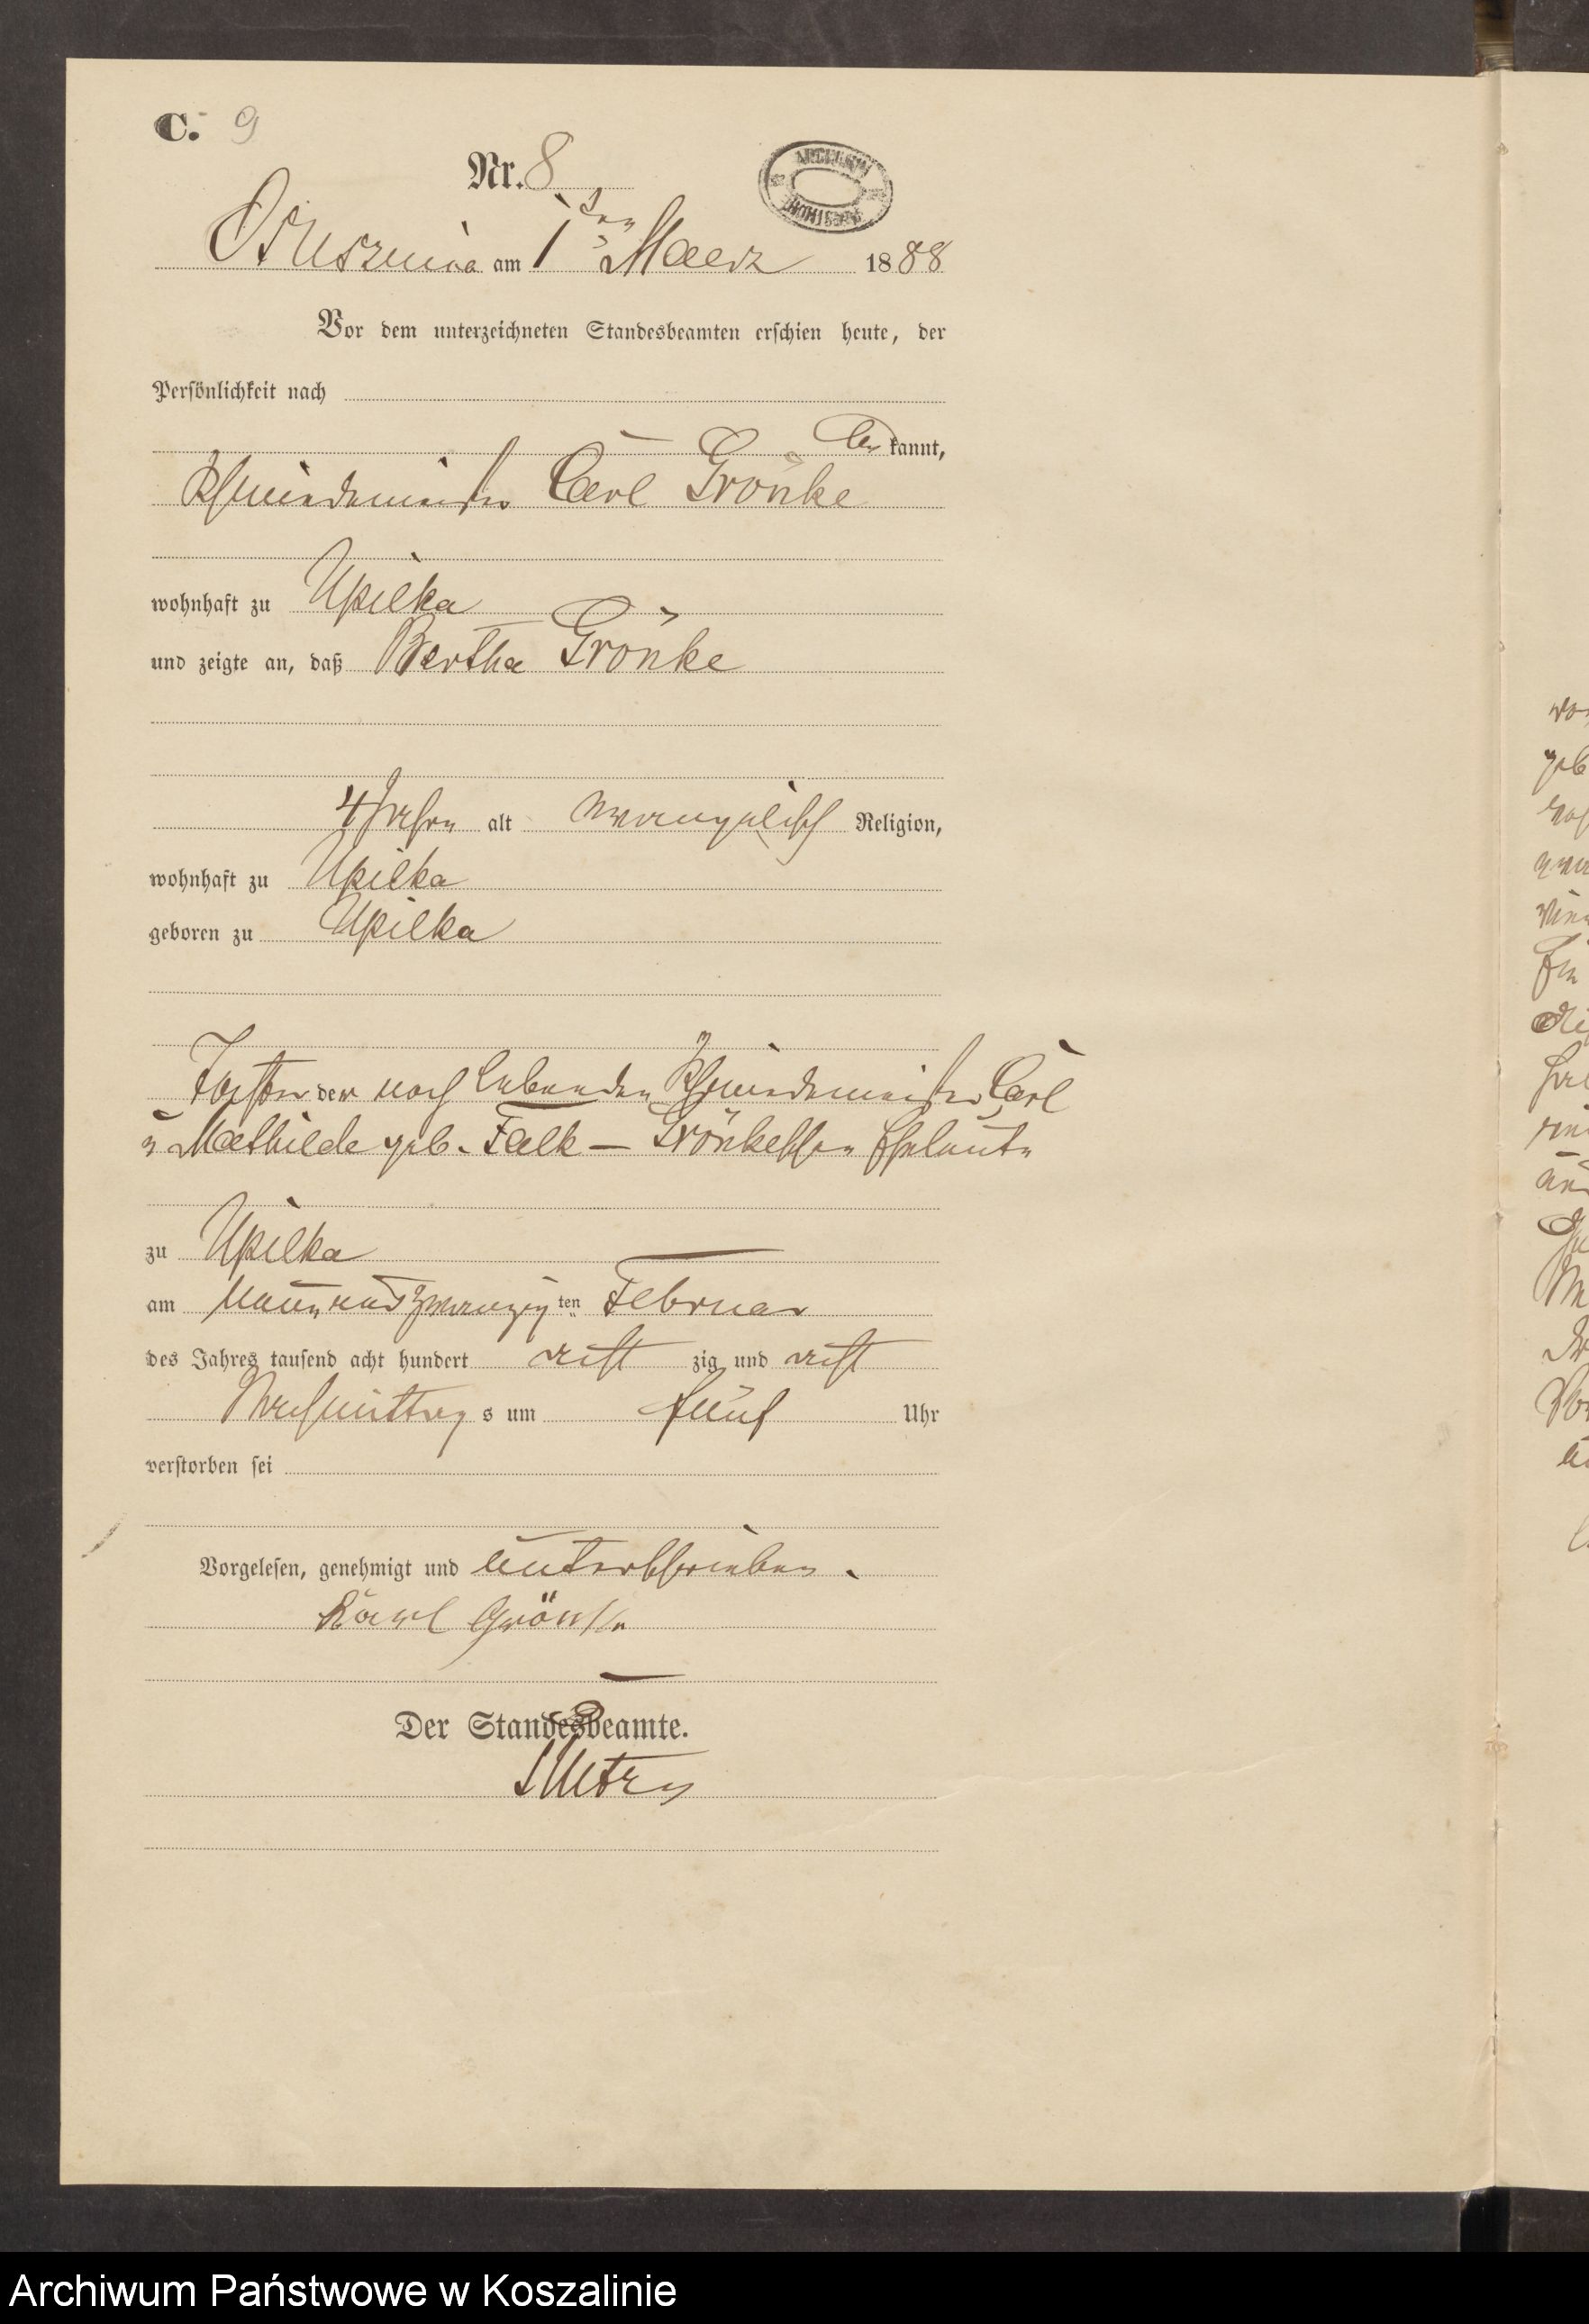 C. 9
Nr. 8
am 1ten Maerz 1888
Vor dem unterzeichneten Standesbeamten erschien heute, der
Persönlichkeit nach
bekannt,
Schmiedemeister Carl Grönke
wohnhaft zu Upilka
und zeigte an, daß Bertha Grönke
4 Jahre alt evangelisch Religion,
wohnhaft zu Upilka
geboren zu Upilka
Tochter der noch lebenden Schmiedemeister Carl
u Mathilde geb. Falk — Grönkeschen Eheleute
zu Upilka
am neun und zwanzig ten Februar
des Jahres tausend acht hundert acht zig und acht
Nachmittag s um fünf Uhr
verstorben sei
Vorgelesen, genehmigt und unterschrieben.
Karl Grönke
Der Standesbeamte.
Archiwum Państwowe w Koszalinie